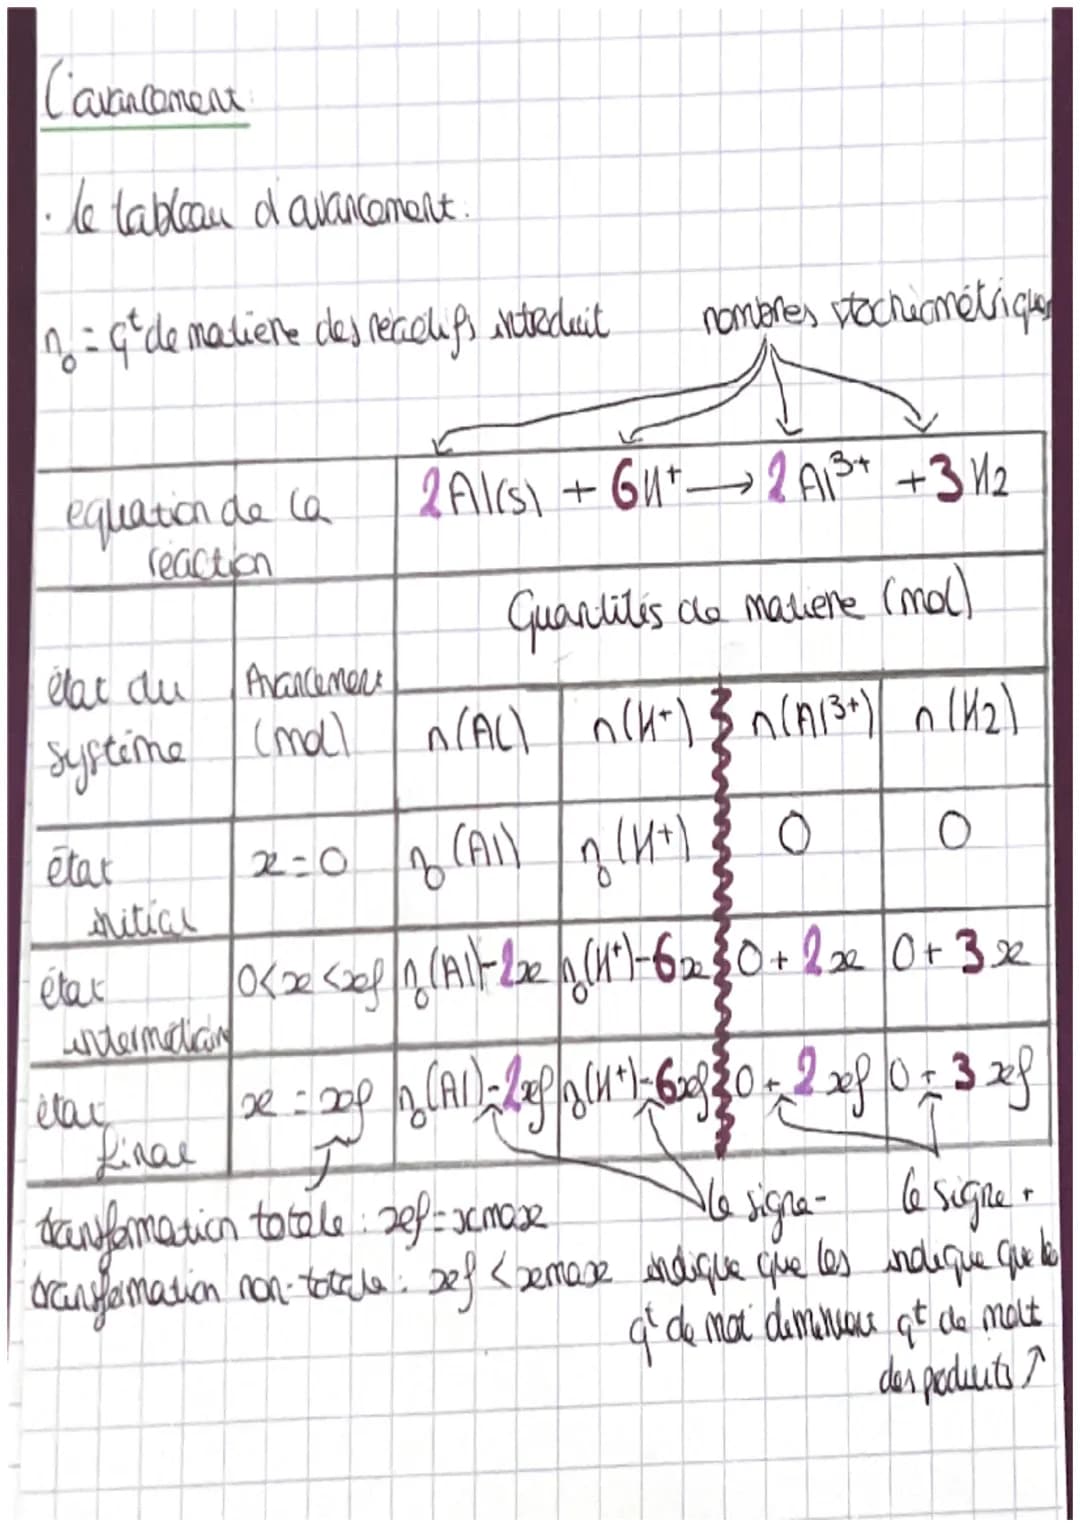 L'avancement
· le tableau d'avancement.
n₀ = qt de matière des réactifs introduit
nombres stochiométriques
equation de la réaction
2Al(s) + 6H⁺ → 2Al³⁺ + 3H2
Quantités de matiere (mol)
état du système
Avancement (mol)
n(Al) n(H⁺) n(Al3+) n(H2)
état initial
x=0 n₀(Al) n₀(H+) 0 0
état intermédiaire
0<x<xf n₀(Al)-2x n₀(H⁺)-6x 0+2x 0+3x
état final
x=xf n₀(Al)-2xf n₀(H+)-6xf 0+2xf 0+3xf
transformation totale : xf=xmax
transformation non-totale : xf<xmax
le signe - indique que les qt de mat diminue
le signe + indique que les qt de mat des produits ↗